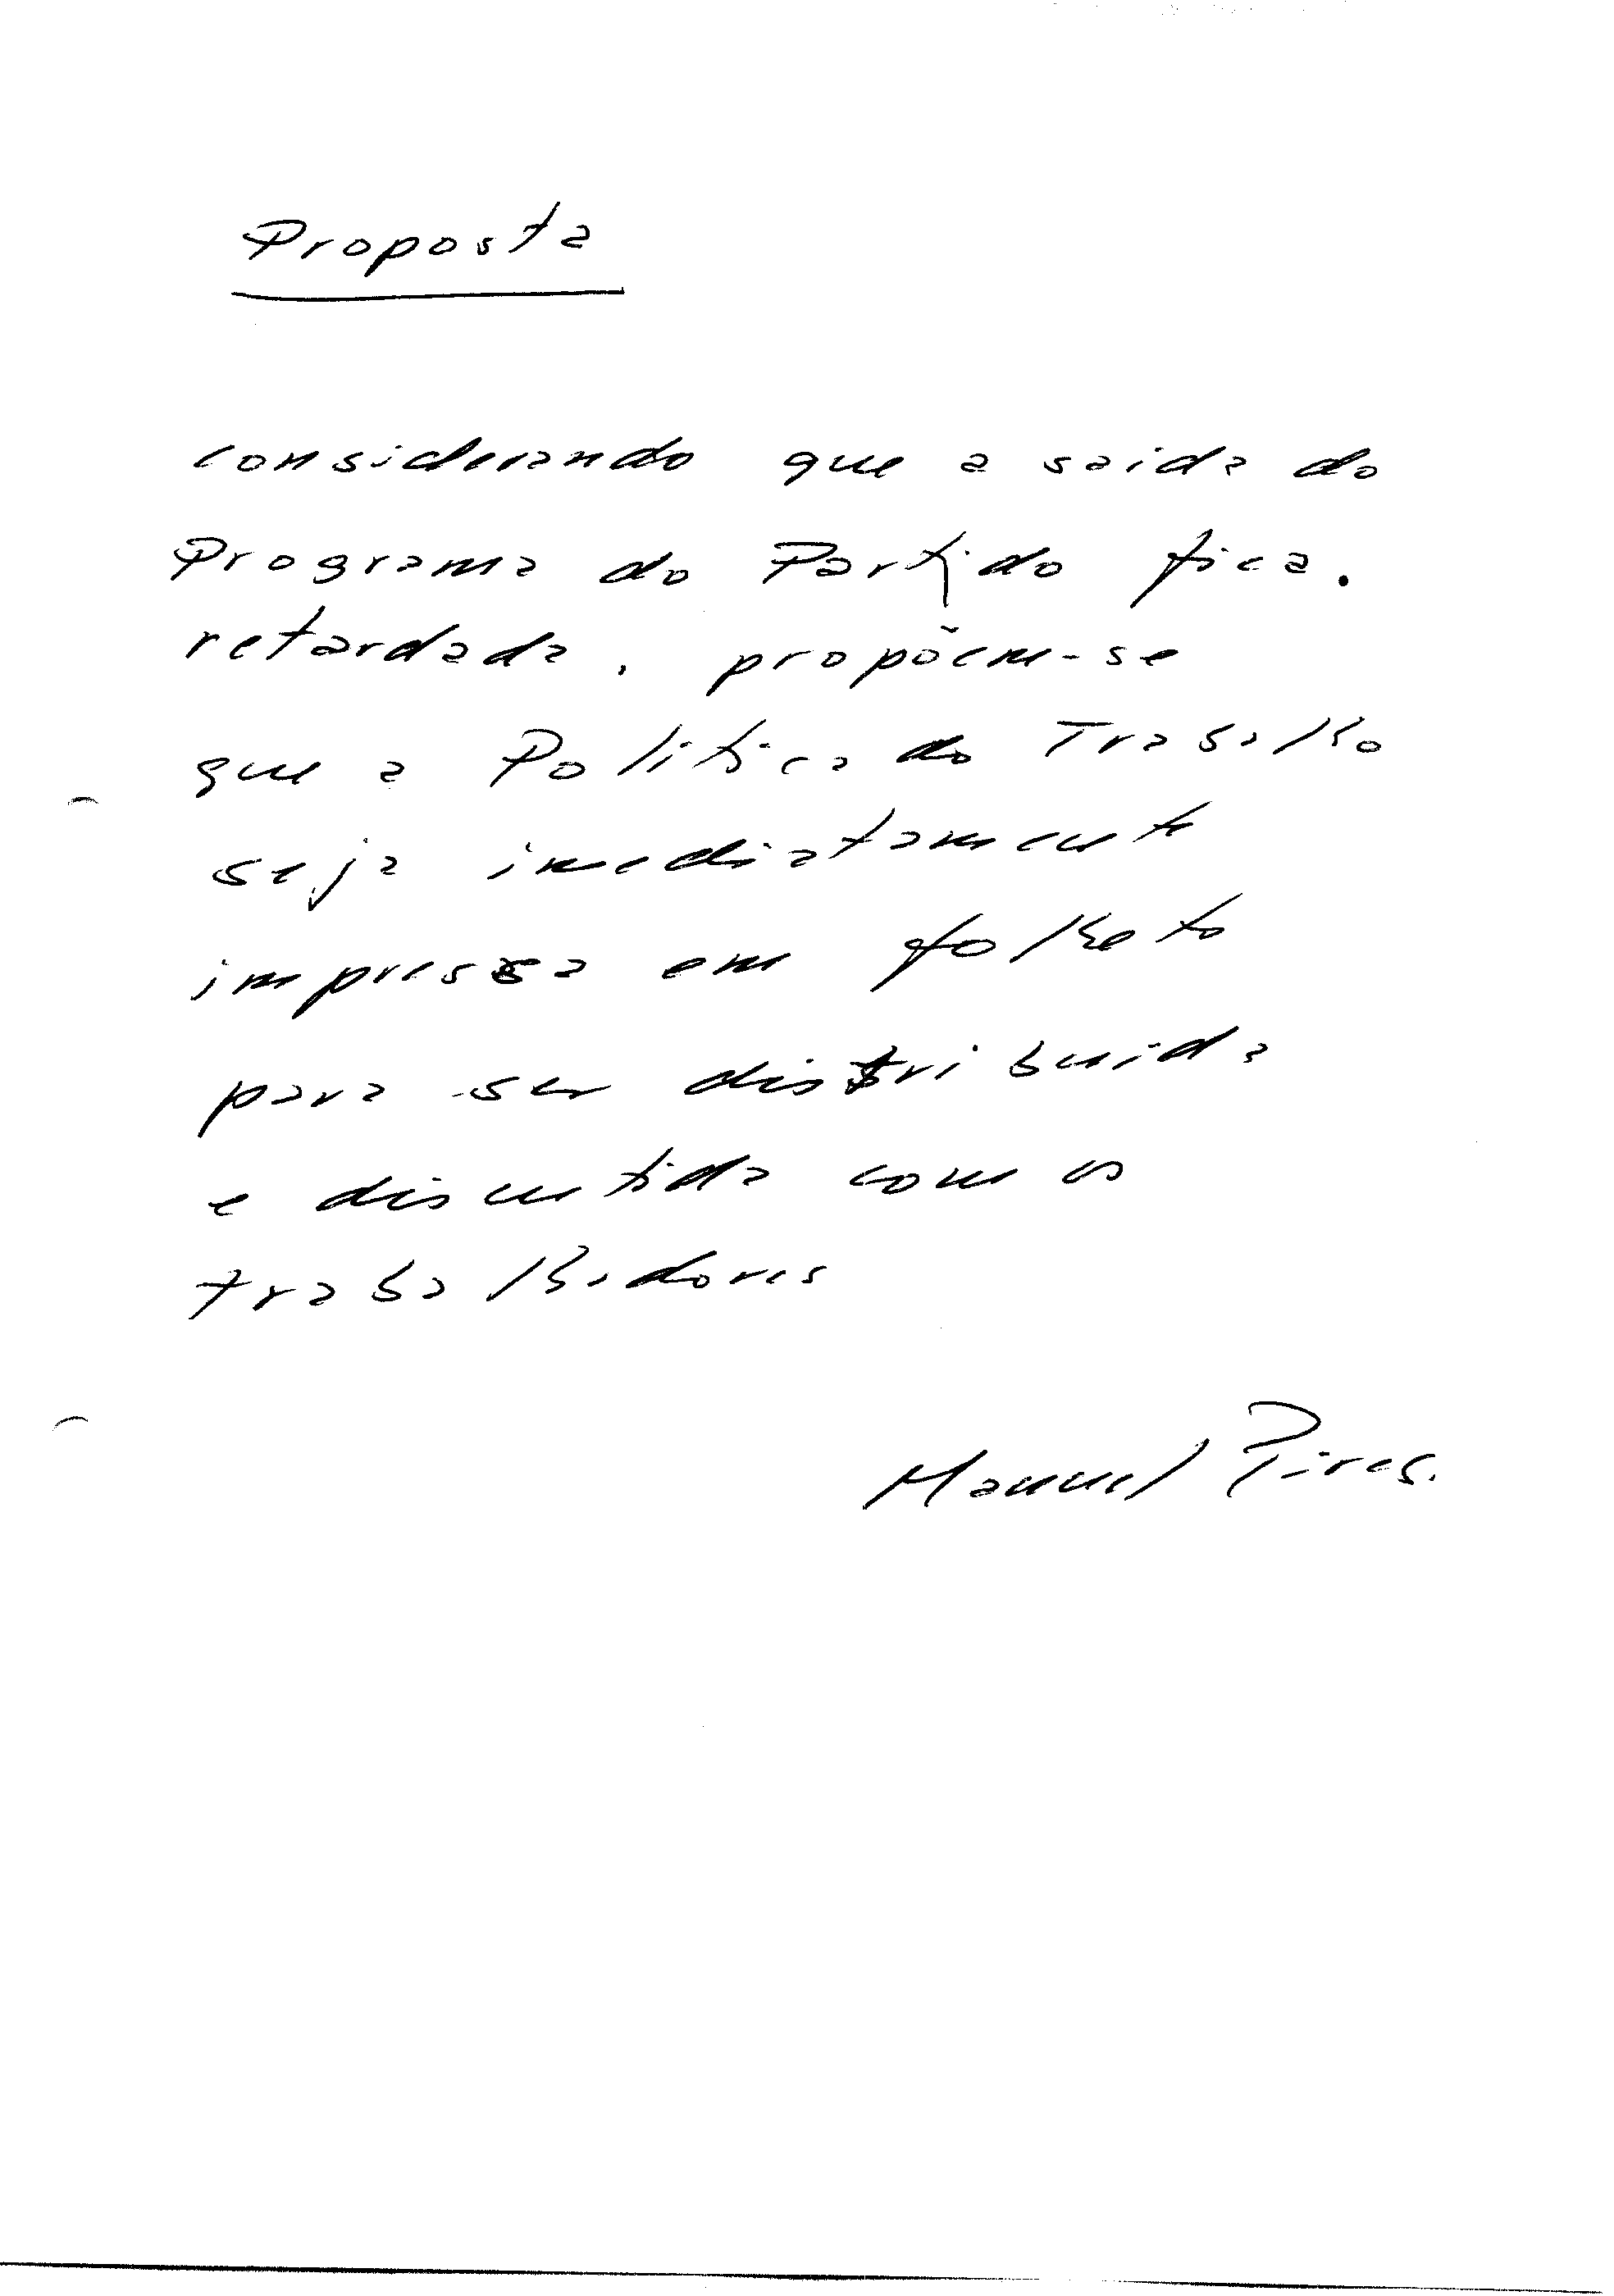 Proposta
considerando que a saida do
Programa do Partido fica.
retardada, propõem-se
que a Politica do Trabalho
seja imediatamente
impressa em folheto
para ser distribuida
e discutida com os
trabalhadores
Manuel Pires.